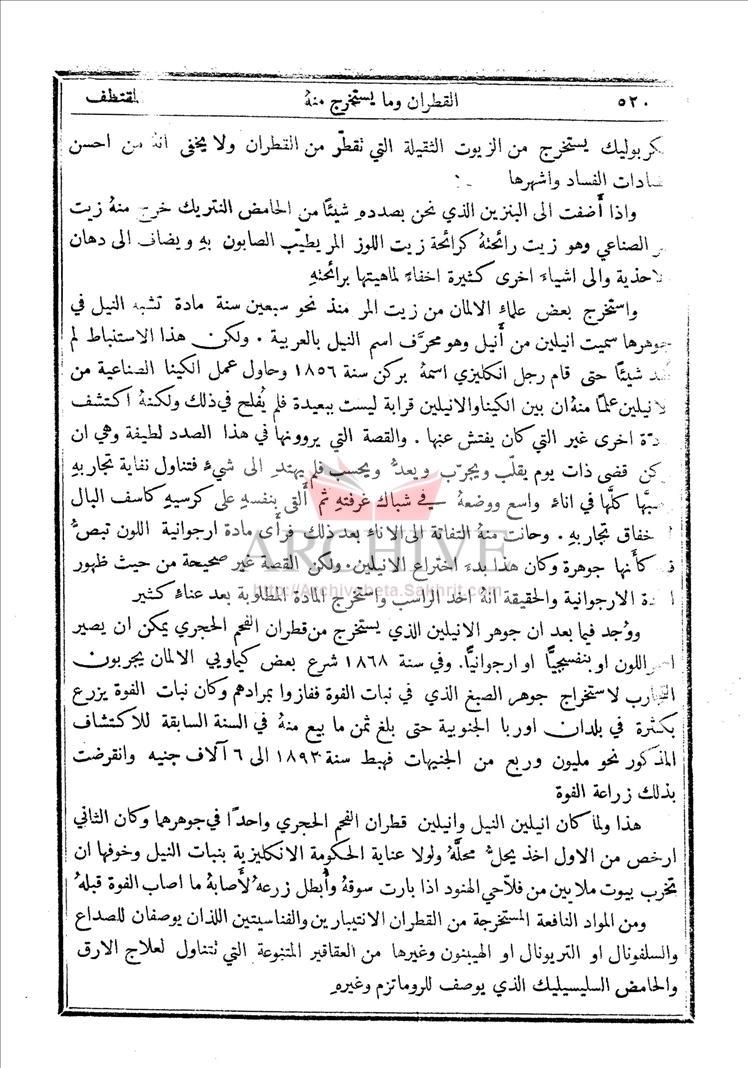 ٥٢٠ القطران وما يستخرج منهُ المقتطف
كربوليك يستخرج من الزيوت الثقيلة التي نقطّر من القطران ولا يخفى انهُ من احسن
ضادات الفساد واشهرها
واذا أَضفت الى البنزين الذي نحن بصدده شيئًا من الحامض النتريك خرج منهُ زيت
الصناعي وهو زيت رائحتهُ كرائحة زيت اللوز المر يطيّب الصابون بهِ ويضاف الى دهان
لاحذية والى اشياء اخرى كثيرة اخفاءً لماهيتها برائحتهِ
واستخرج بعض علماءِ الالمان من زيت المر منذ نحو سبعين سنة مادة تشبه النيل في
جوهرها سميت انيلين من أَنيل وهو محرَّف اسم النيل بالعربية . ولكن هذا الاستنباط لم
شيئًا حتى قام رجل انكليزي اسمهُ بركن سنة ١٨٥٦ وحاول عمل الكينا الصناعية من
لانيلين علمًا منهُ ان بين الكينا والانيلين قرابة ليست ببعيدة فلم يُفلح في ذلك ولكنهُ اكتشف
دَّة اخرى غير التي كان يفتش عنها . والقصة التي يروونها في هذا الصدد لطيفة وهي ان
كن قضى ذات يوم يقلّب ويجرّب ويعدُّ ويحسب فلم يهتدِ الى شيءٍ فتناول نفاية تجاربهِ
صبَّها كلَّها في اناءٍ واسع ووضعهُ في شباك غرفتهِ ثم ألقى بنفسهِ على كرسيهِ كاسف البال
خفاق تجاربهِ . وحانت منهُ التفاتة الى الاناء بعد ذلك فرأَى مادة ارجوانية اللون تبصُّ
كأَنها جوهرة وكان هذا بدء اختراع الانيلين . ولكن القصة غير صحيحة من حيث ظهور
دة الارجوانية والحقيقة انهُ اخذ الراسب واستخرج المادة المطلوبة بعد عناءٍ كثير
ووُجد فيما بعد ان جوهر الانيلين الذي يستخرج من قطران الفحم الحجري يمكن ان يصير
احمر اللون او بنفسجيًّا او ارجوانيًّا. وفي سنة ١٨٦٨ شرع بعض كيماويي الالمان يجربون
التجارب لاستخراج جوهر الصبغ الذي في نبات الفوة ففازوا بمرادهم وكان نبات الفوة يزرع
بكثرة في بلدان اوربا الجنوبية حتى بلغ ثمن ما بيع منهُ في السنة السابقة للاكتشاف
المذكور نحو مليون وربع من الجنيهات فهبط سنة ١٨٩٣ الى ٦ آلاف جنيه وانقرضت
بذلك زراعة الفوة
هذا ولما كان انيلين النيل وانيلين قطران الفحم الحجري واحدًا في جوهرهما وكان الثاني
ارخص من الاول اخذ يحلُّ محلَّهُ ولولا عناية الحكومة الانكليزية بنبات النيل وخوفها ان
تخرب بيوت ملايين من فلاَّحي الهنود اذا بارت سوقهُ وأُبطل زرعهُ لأَصابهُ ما اصاب الفوة قبلهُ
ومن المواد النافعة المستخرجة من القطران الانتيبارين والفناسيتين اللذان يوصفان للصداع
والسلفونال او التريونال او الهيبنون وغيرها من العقاقير المتنوعة التي تتناول لعلاج الارق
والحامض السليسيليك الذي يوصف للروماتزم وغيرهِ
ARCHIVE
http://Archivebeta.Sakhrit.com